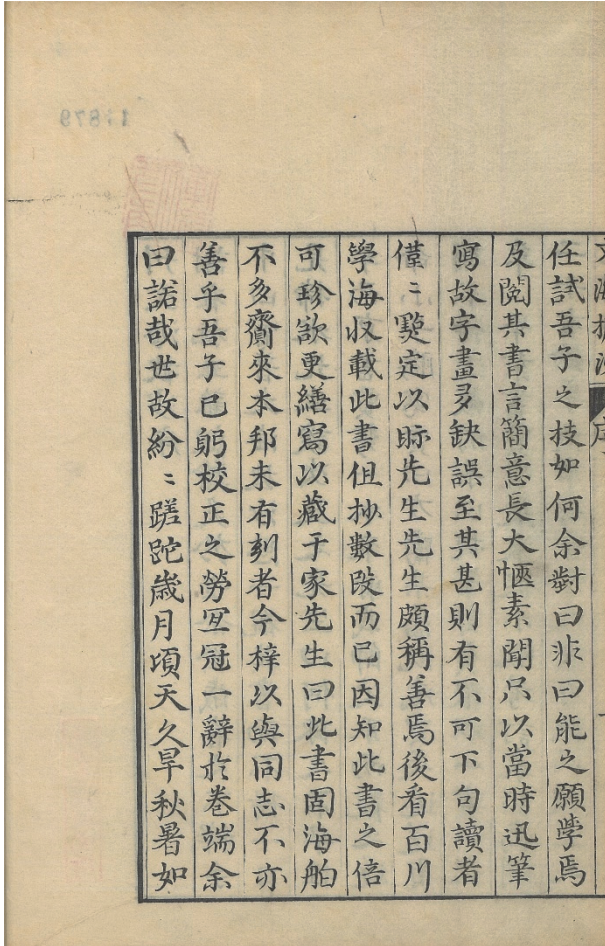 任試吾子之技如何余對曰非曰能之願學焉
及閱其書言簡意長大愜素聞只以當時迅筆
寫故字畫多缺誤至其甚則有不可下句讀者
僅〻㸃定以眎先生先生頗稱善焉後看百川
學海収載此書但抄數段而已因知此書之倍
可珍欲更繕寫以藏于家先生曰此書固海舶
不多齎來本邦未有刻者今梓以與同志不亦
善乎吾子已躬校正之勞冝冠一辭於巻端余
曰諾哉世故紛〻蹉跎歳月頃天久旱秋暑如
11879